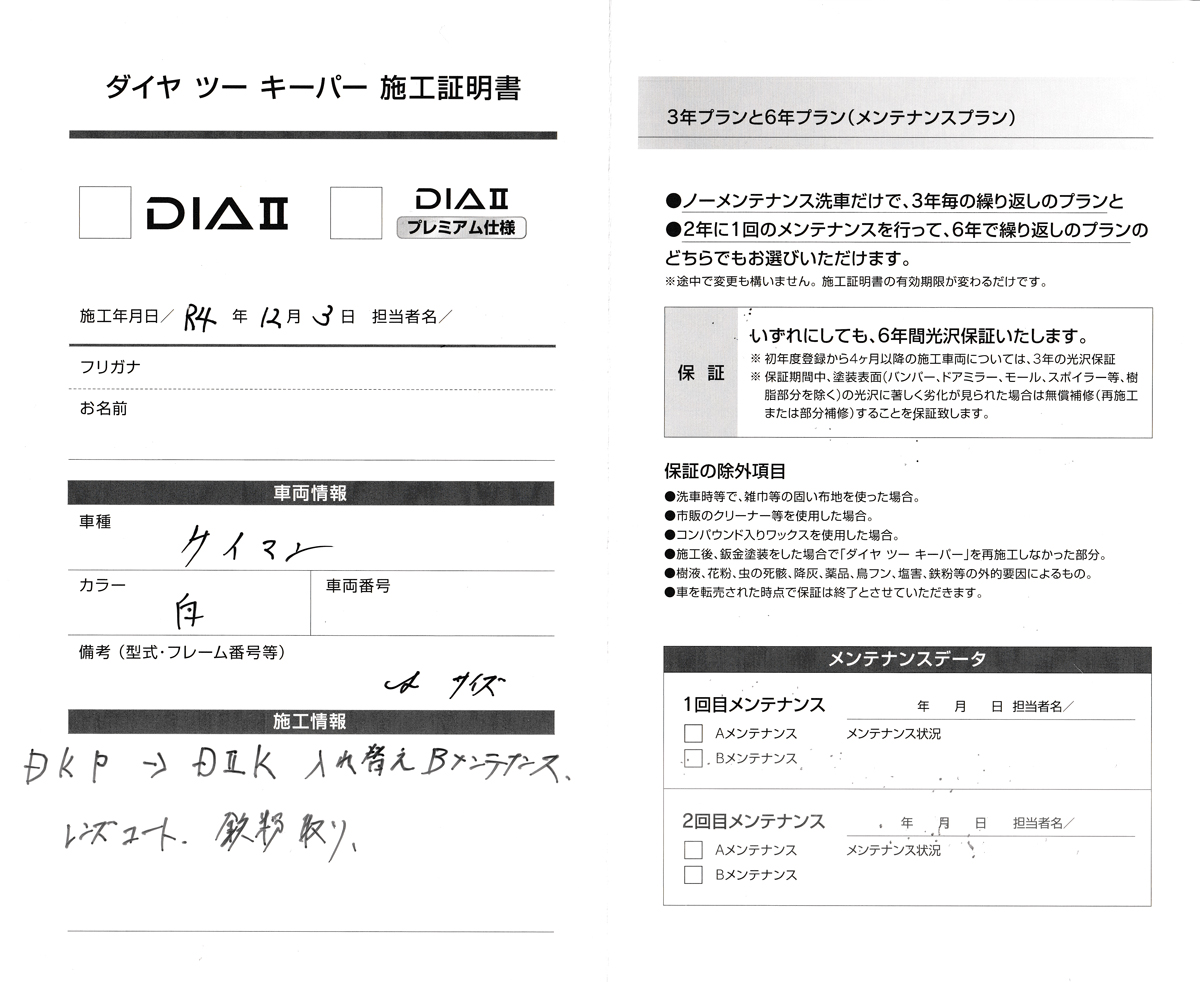 ダイヤ ツー キーパー 施工証明書
DIAⅡ
DIAⅡ
プレミアム仕様
施工年月日／ R4 年 12月 3 日 担当者名／
フリガナ
お名前
車両情報
車種
ケイマン
カラー
車両番号
白
備考（型式・フレーム番号等）
サイズ
施工情報
DKP → DⅡK 入れ替え Bメンテナンス、
レンズコート. 鉄粉取り、
3年プランと6年プラン（メンテナンスプラン）
●ノーメンテナンス洗車だけで、3年毎の繰り返しのプランと
●2年に1回のメンテナンスを行って、6年で繰り返しのプランの
どちらでもお選びいただけます。
※途中で変更も構いません。施工証明書の有効期限が変わるだけです。
保 証
いずれにしても、6年間光沢保証いたします。
※ 初年度登録から4ヶ月以降の施工車両については、3年の光沢保証
※ 保証期間中、塗装表面（バンパー、ドアミラー、モール、スポイラー等、樹
脂部分を除く）の光沢に著しく劣化が見られた場合は無償補修（再施工
または部分補修）することを保証致します。
保証の除外項目
●洗車時等で、雑巾等の固い布地を使った場合。
●市販のクリーナー等を使用した場合。
●コンパウンド入りワックスを使用した場合。
●施工後、鈑金塗装をした場合で「ダイヤ ツー キーパー」を再施工しなかった部分。
●樹液、花粉、虫の死骸、降灰、薬品、鳥フン、塩害、鉄粉等の外的要因によるもの。
●車を転売された時点で保証は終了とさせていただきます。
メンテナンスデータ
1回目メンテナンス 年 月 日 担当者名／
Aメンテナンス メンテナンス状況
Bメンテナンス
2回目メンテナンス 年 月 日 担当者名／
Aメンテナンス メンテナンス状況
Bメンテナンス